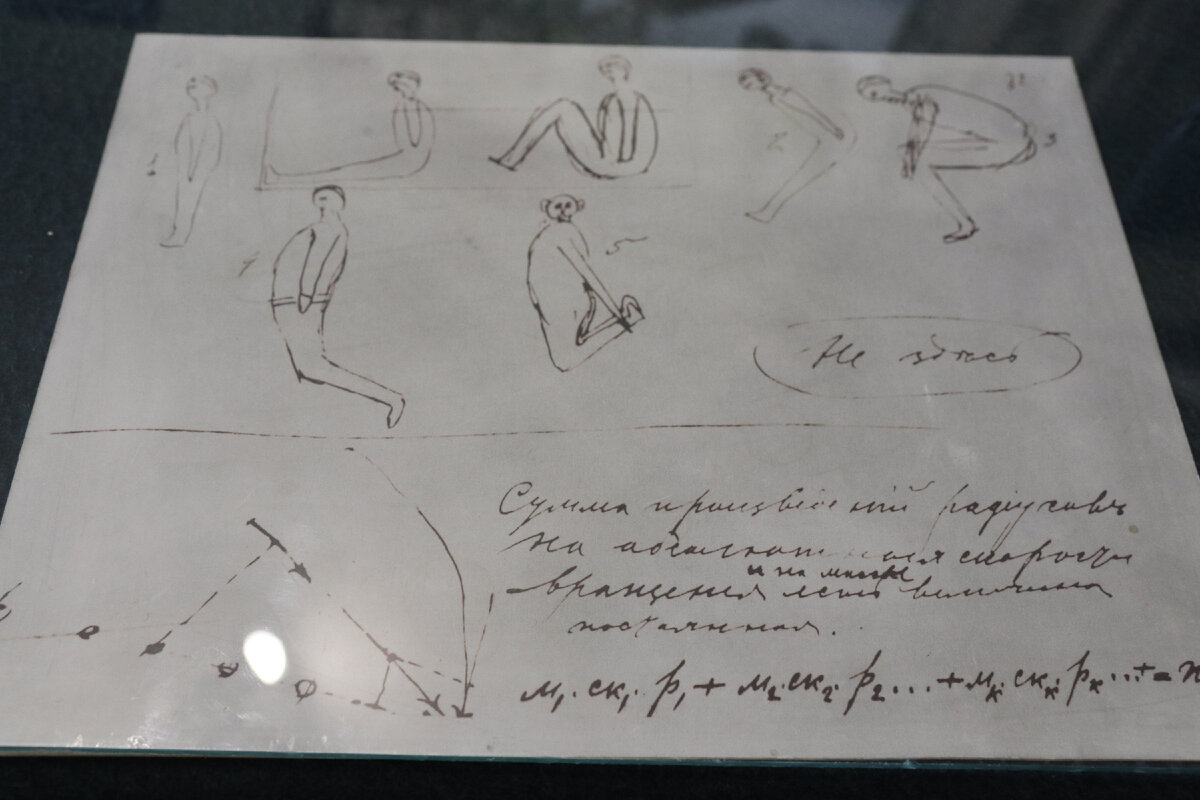 1
2
3
4
5
Не здѣсь
Сумма произведений радіусовъ
на абсолютныя скорости
вращения и на массы есть величина
постоянная.
м₁.ск₁.р₁ + м₂.ск₂.р₂ ... + мₖ.скₖ.рₖ ... + =